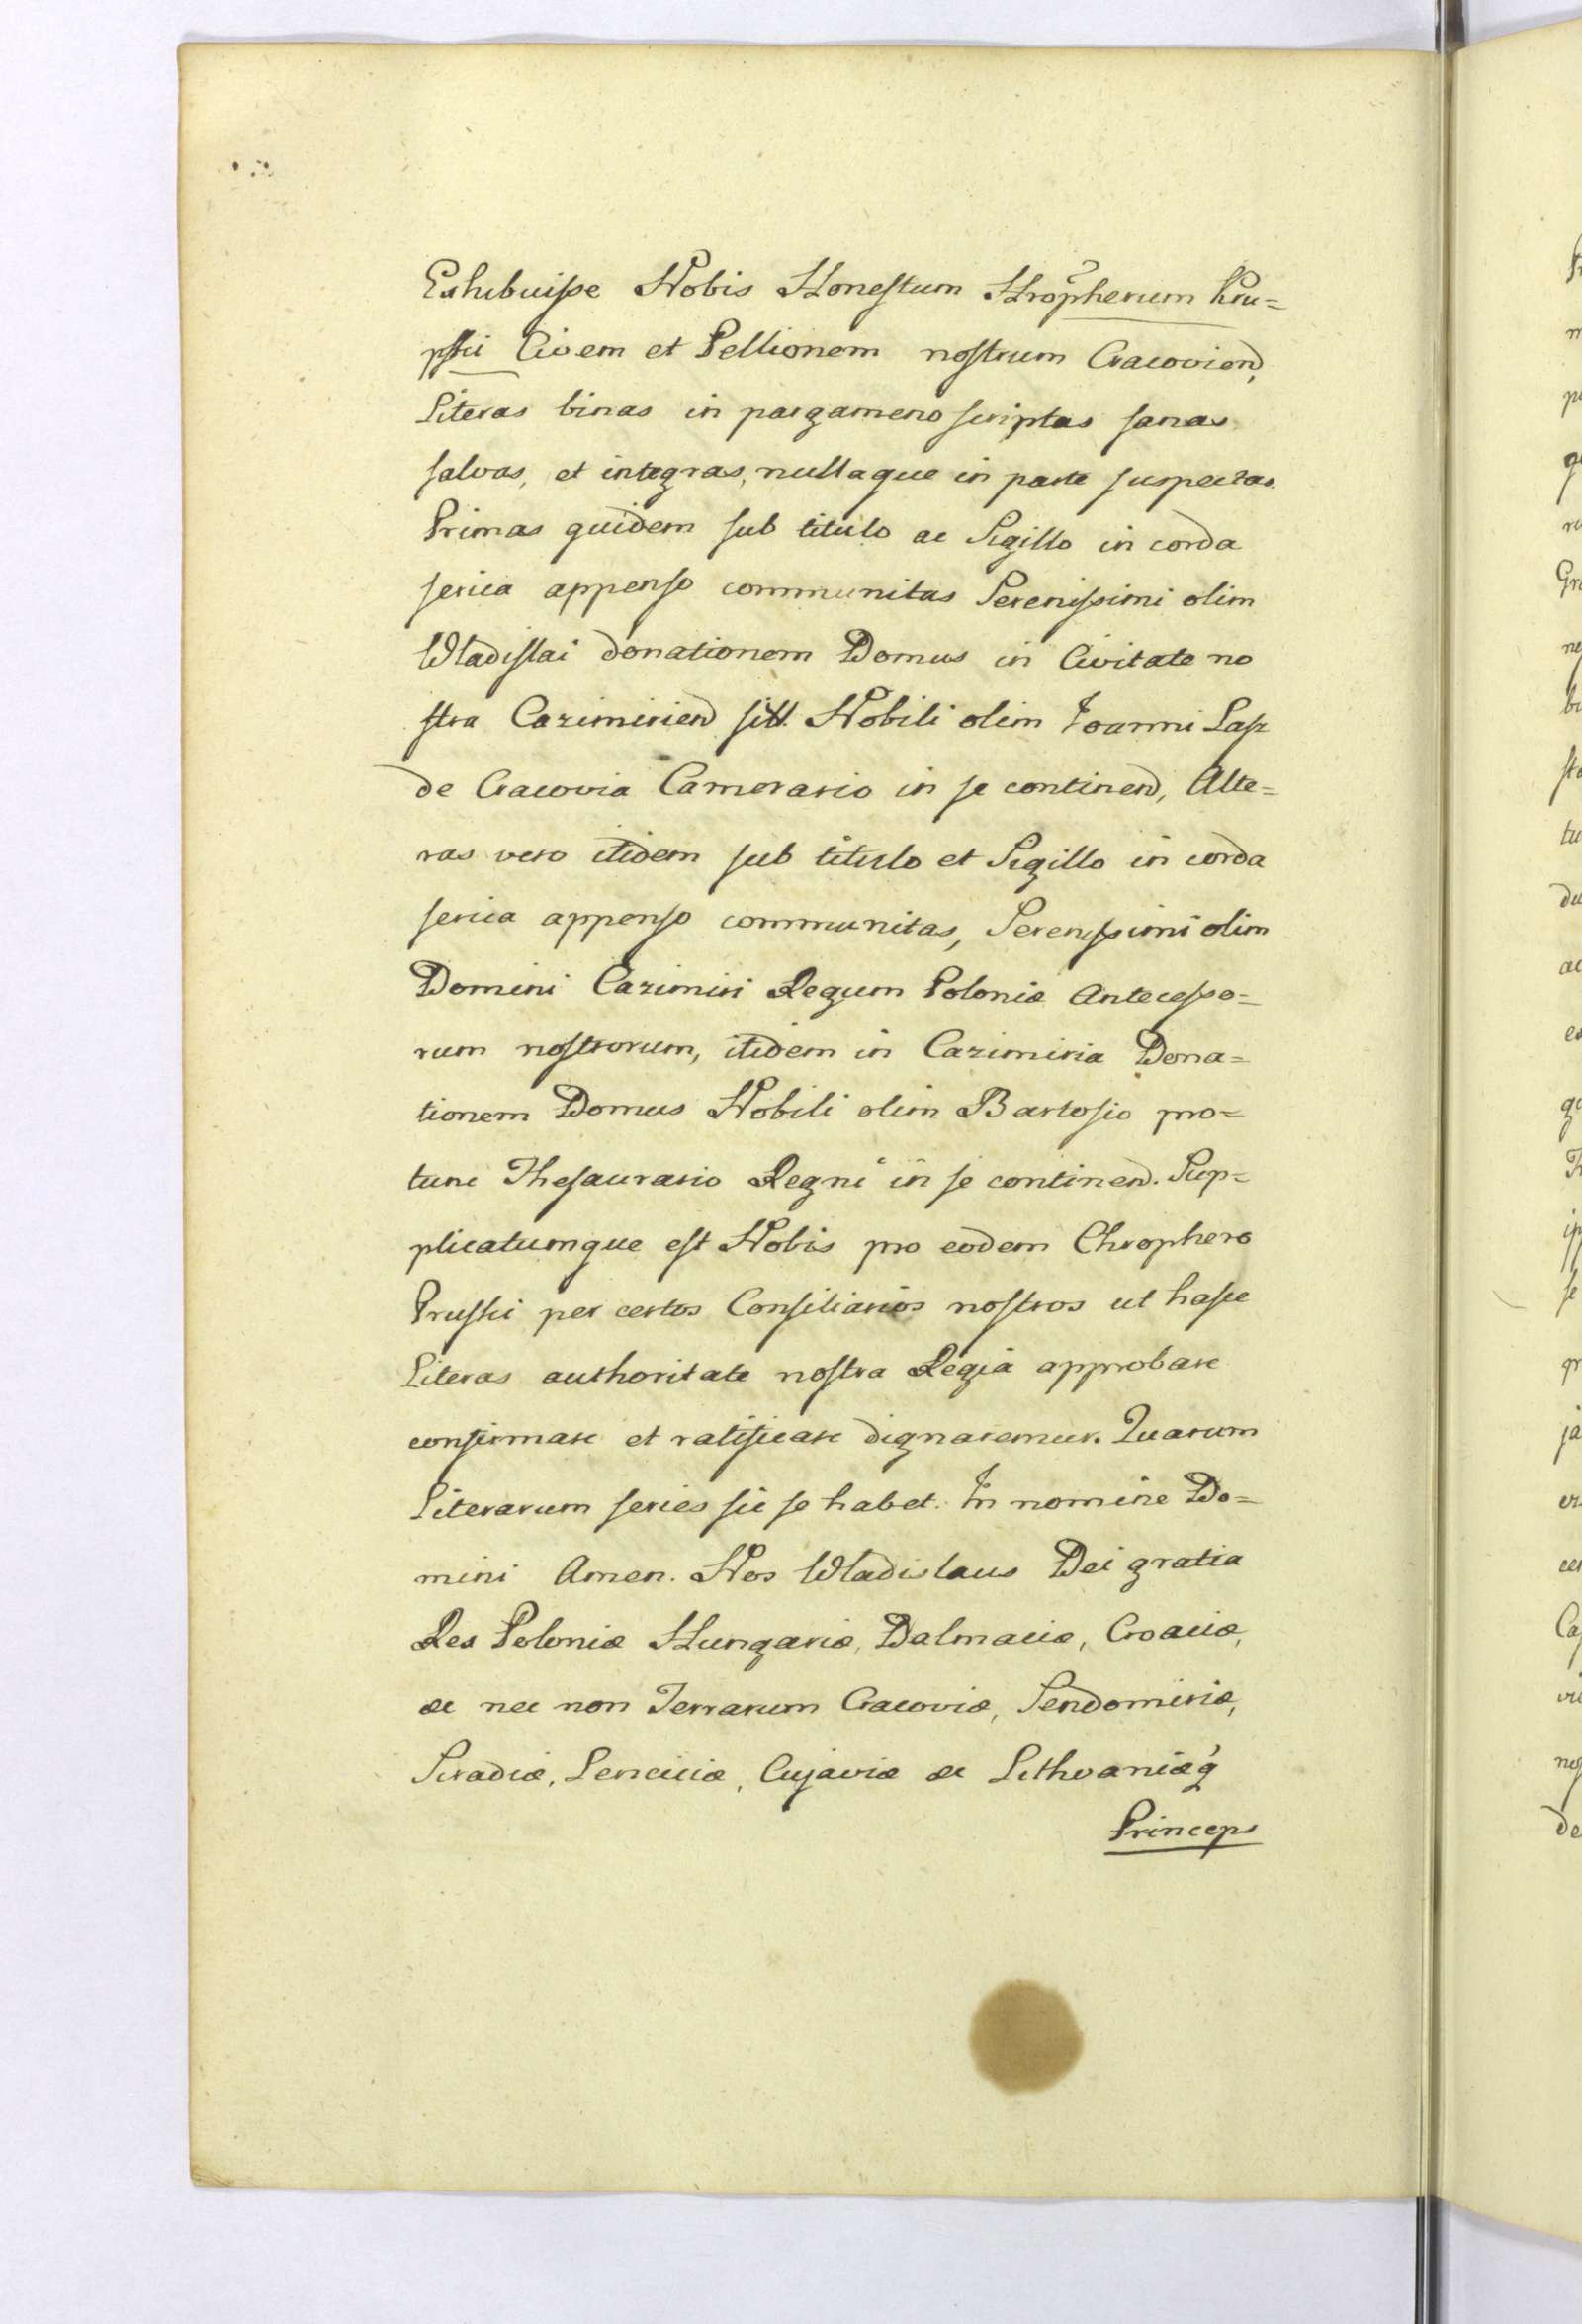 Exhibuiſse Nobis Honeſtum Hropherum Kru=
pſki Civem et Pellionem noſtrum Cracoviend,
Literas binas in pargameno ſcriptas ſanas
ſalvas, et integras, nullaque in parte ſuspectas.
Primas quidem ſub titulo ac Sigillo in corda
ſerica appenſo communitas Sereniſsimi olim
Wladiſlai donationem Domus in Civitate no
ſtra Cazimiriend ſitt. Nobili olim Joanni Laſz
de Cracovia Camerario in ſe continend, Alte=
ras vero itidem ſub titulo et Sigillo in corda
ſerica appenſo communitas, Sereniſsimi olim
Domini Cazimiri Regum Poloniæ Anteceſso=
rum noſtrorum, itidem in Cazimiria Dona=
tionem Domus Nobili olim Bartoſio pro=
tunc Theſaurario Regni in ſe continend. Sup=
plicatumque eſt Nobis pro eodem Chrophero
Pruſki per certos Conſiliarios noſtros ut haſce
Literas authoritate noſtra Regia approbare
confirmare et ratificare dignaremur. Quarum
Literarum ſeries ſic ſe habet. In nomine Do=
mini Amen. Nos Wladislaus Dei gratia
Rex Poloniæ Hungariæ, Dalmaciæ, Croaciæ,
ac nec non Terrarum Cracoviæ, Sendomiriæ,
Siradiæ, Lenciciæ, Cujaviæ ac Lithvaniæq́
Princeps